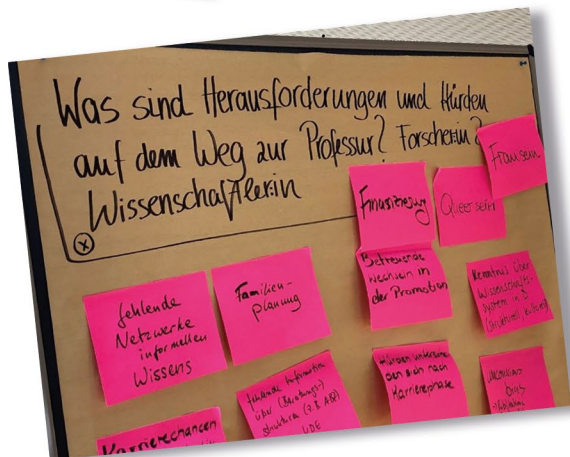 Was sind Herausforderungen und Hürden
auf dem Weg zur Professur? Forscher:in?
Wissenschaftler:in
Frausein
Finanzierung
Queer sein
fehlende
Netzwerke
informellen
Wissens
Familien-
planung
Betreuende
wechseln in
der Promotion
Kenntnis über
Wissenschafts-
system in D
(strukturell, kulturell)
Karrierechancen
fehlende Information
über (Beratungs-)
strukturen (z.B. ABZ)
UDE
Hürden unterschei-
den sich nach
Karrierephase
bias